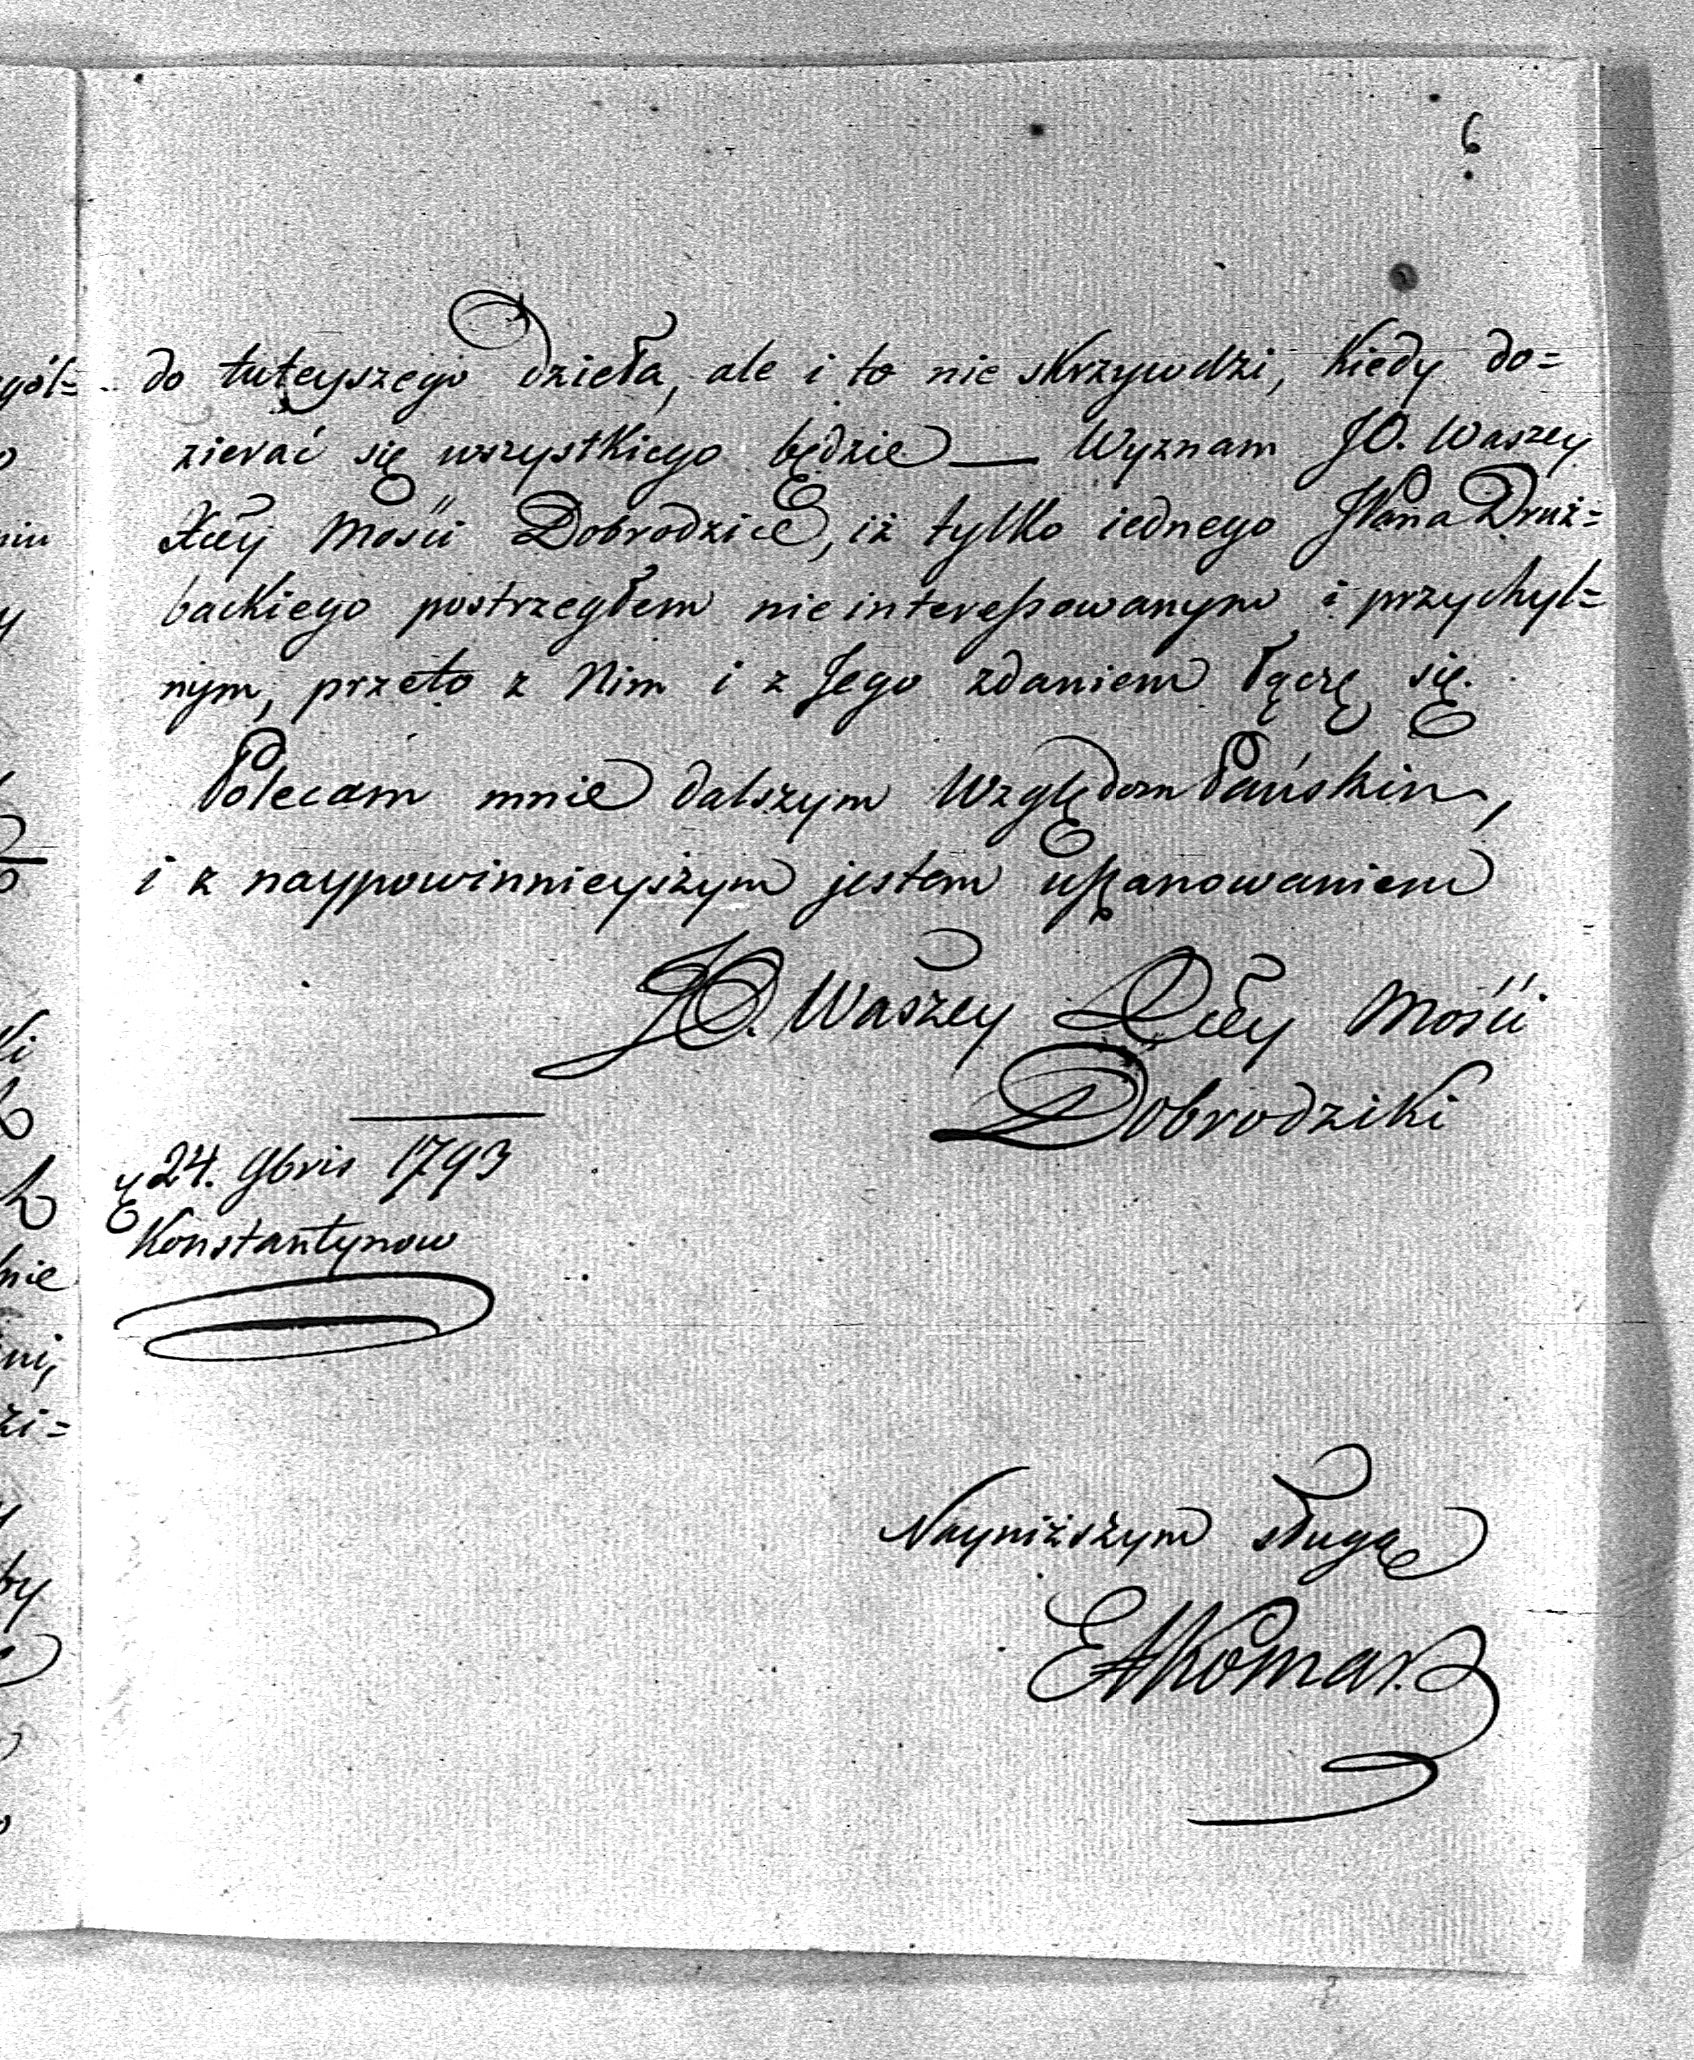 6
do tuteyszego Dzieła, ale i to nie skrzywdzi, kiedy do=
zierać się wszystkiego będzie — Wyznam JO. Waszey
Xcey Mości Dobrodzice, iż tylko iednego JPana Druż=
backiego postrzegłem nie interessowanym i przychyl=
nym, przeto z Nim i z Jego zdaniem łączę się.
Polecam mnie dalszym Względom Pańskim,
i z naypowinnieyszym jestem uszanowaniem
JO. Waszey Xcey Mości
Dobrodziki
24. 9bris 1793
Konstantynow
Nayniższym sługą
Komar